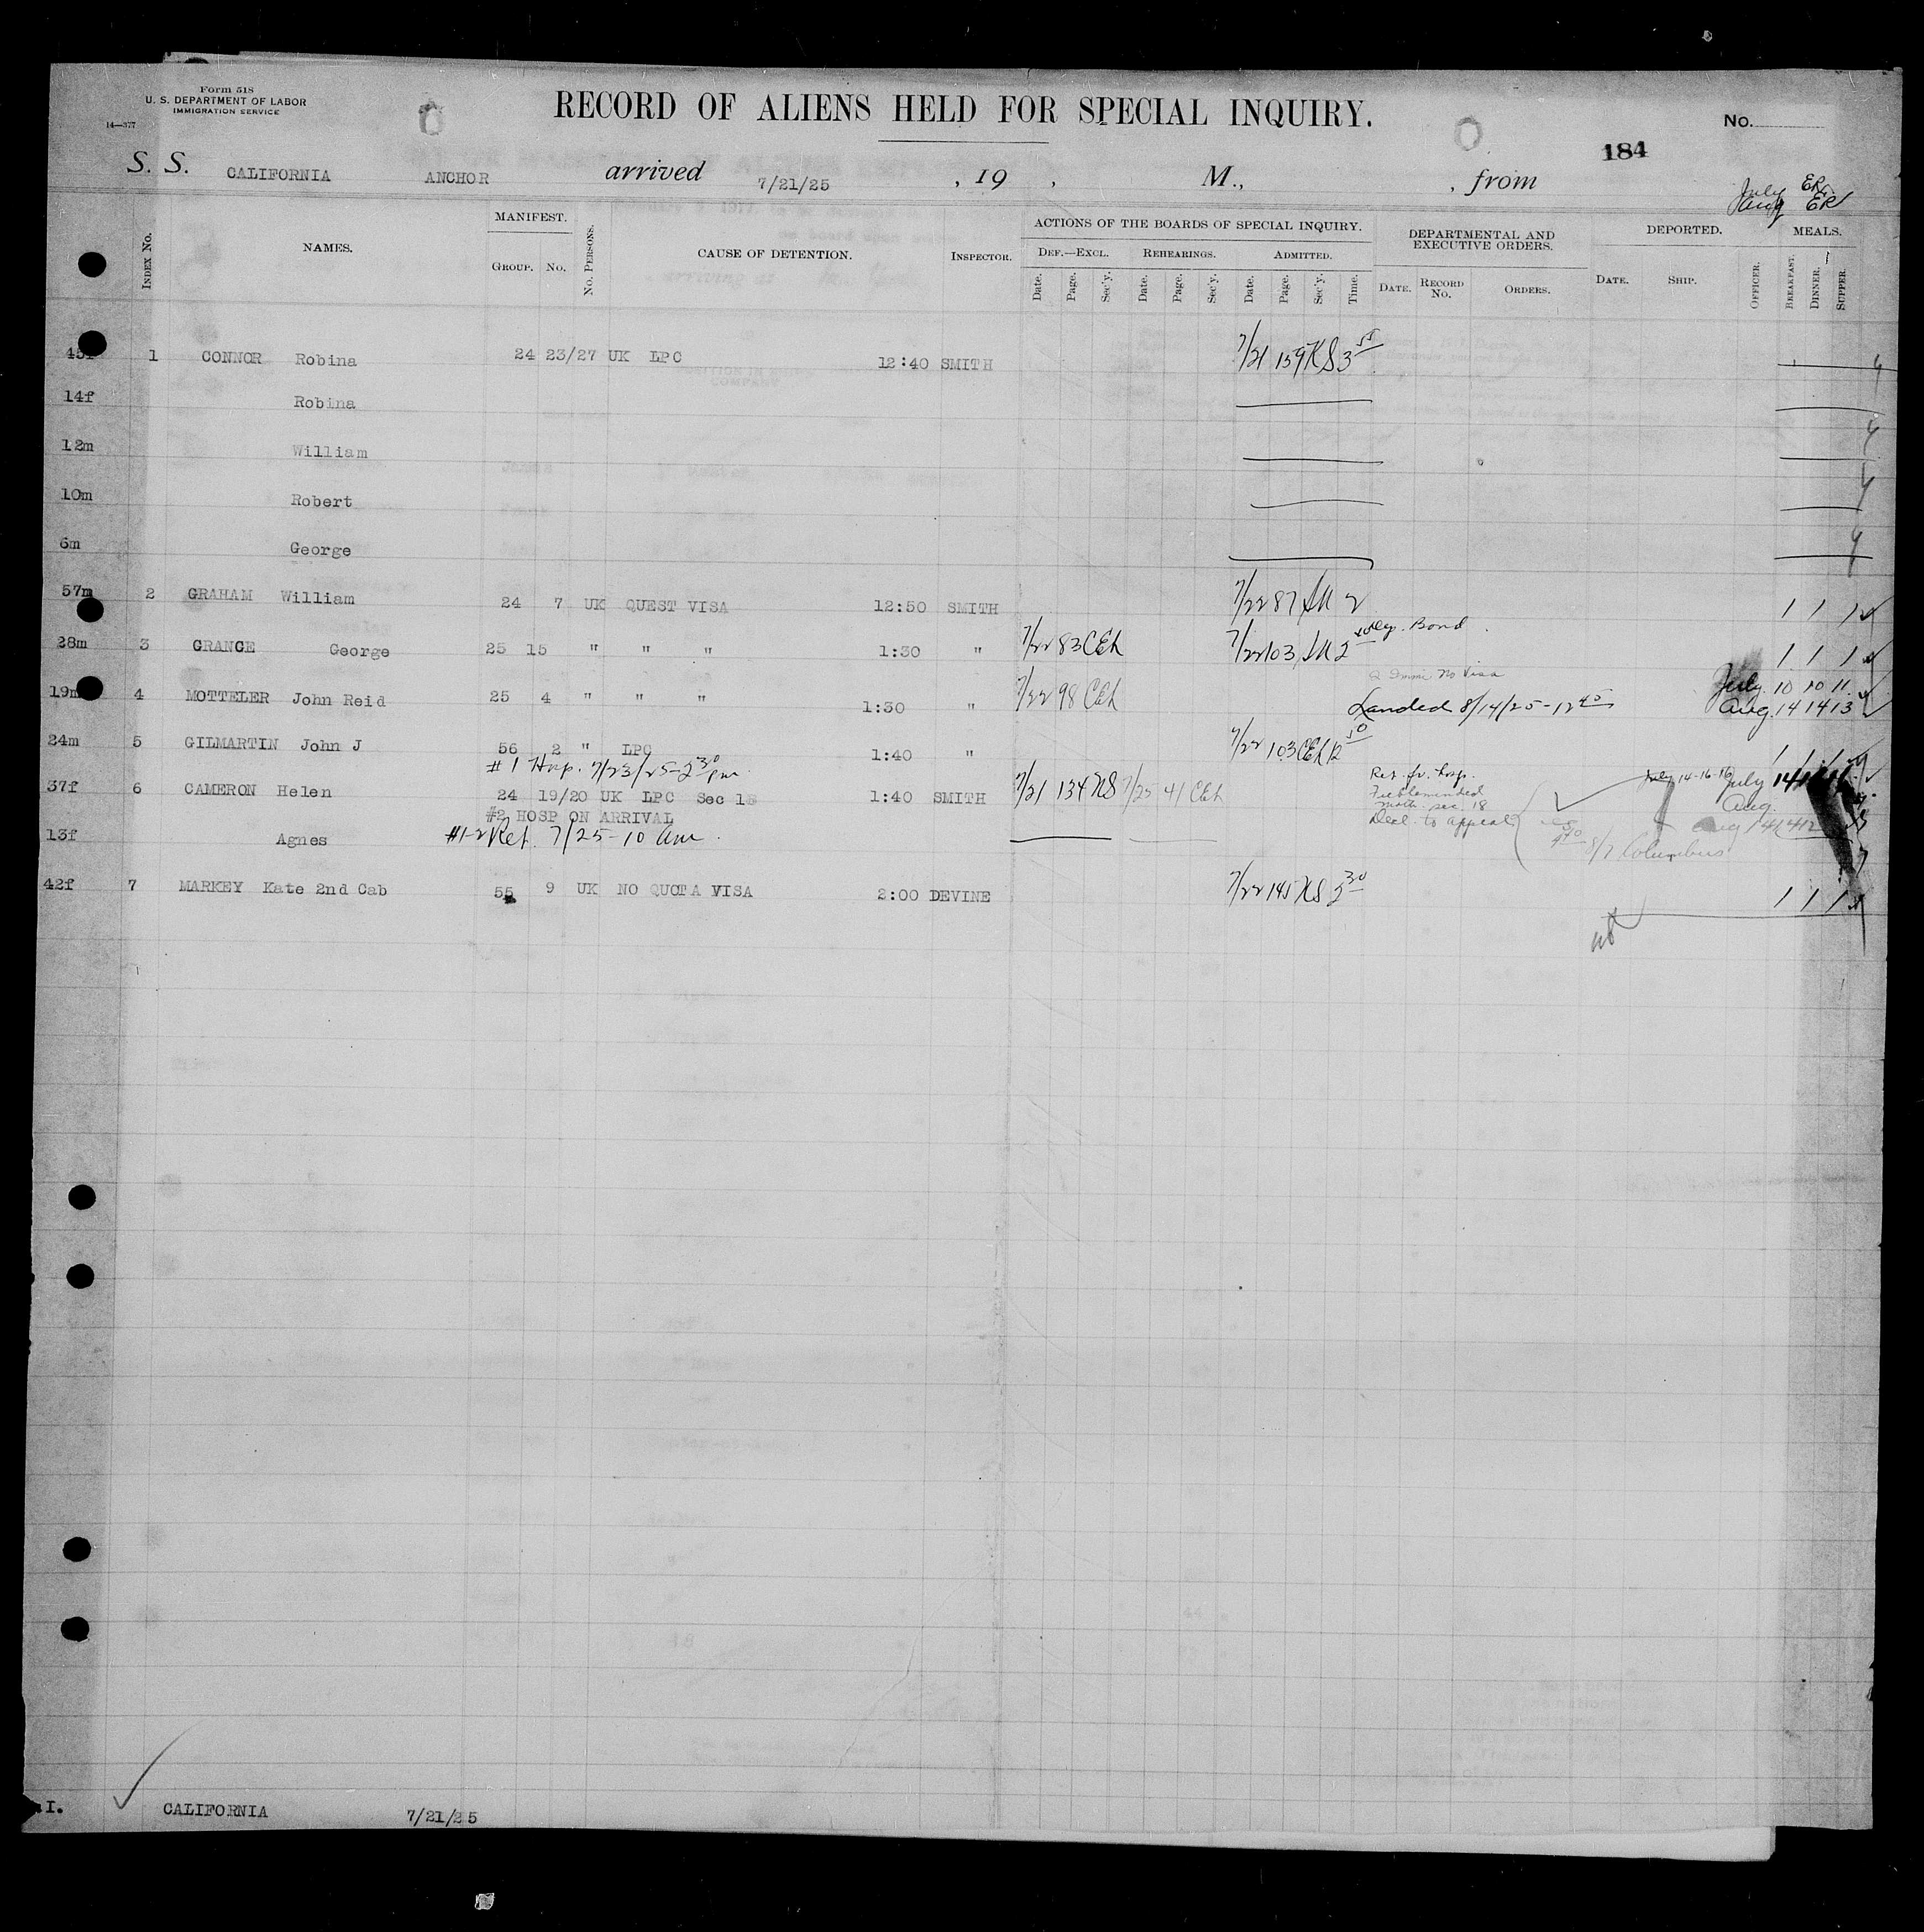 Form 518
U. S. DEPARTMENT OF LABOR
IMMIGRATION SERVICE
14—377
RECORD OF ALIENS HELD FOR SPECIAL INQUIRY.
No.
184
S. S. CALIFORNIA ANCHOR arrived 7/21/25 , 19 , M., , from
July ER
Aug ER
INDEX NO. NAMES. MANIFEST. GROUP. NO. NO. PERSONS. CAUSE OF DETENTION. INSPECTOR. ACTIONS OF THE BOARDS OF SPECIAL INQUIRY. DEPARTMENTAL AND EXECUTIVE ORDERS. DEPORTED. MEALS.
DEF.—EXCL. REHEARINGS. ADMITTED.
Date. Page. Sec'y. Date. Page. Sec'y. Date. Page. Sec'y. Time. DATE. RECORD NO. ORDERS. DATE. SHIP. OFFICER. BREAKFAST. DINNER. SUPPER.
45f 1 CONNOR Robina 24 23/27 UK LPC 12:40 SMITH 7/21 159 KS 3 55
14f Robina
12m William
10m Robert
6m George
57m 2 GRAHAM William 24 7 UK QUEST VISA 12:50 SMITH 7/22 87 2 1 1 1
28m 3 GRANGE George 25 15 " " " 1:30 " 7/22 83 CEh 7/22 103 2 Bond 1 1 1
19m 4 MOTTELER John Reid 25 4 " " " 1:30 " 7/22 98 CEh No Visa July 10 10 11
Landed 8/14/25-12 45 Aug. 14 14 13
24m 5 GILMARTIN John J 56 2 " LPC 1:40 " 7/22 103 CEh 12 50 1 1 1
#1 Hosp. 7/23/25-2 30 pm
37f 6 CAMERON Helen 24 19/20 UK LPC Sec 18 1:40 SMITH 7/21 134 KS 7/25 41 CEh Ret. fr. hosp. July 14-16-16 July
Feebleminded
Moth. sec. 18 Aug.
#2 HOSP ON ARRIVAL
Decl. to appeal Aug 14 14 12
13f Agnes #1-2 Ret. 7/25-10 am.
8/7 Columbus
42f 7 MARKEY Kate 2nd Cab 55 9 UK NO QUOTA VISA 2:00 DEVINE 7/22 145 KS 2 30 1 1 1
I. CALIFORNIA 7/21/25